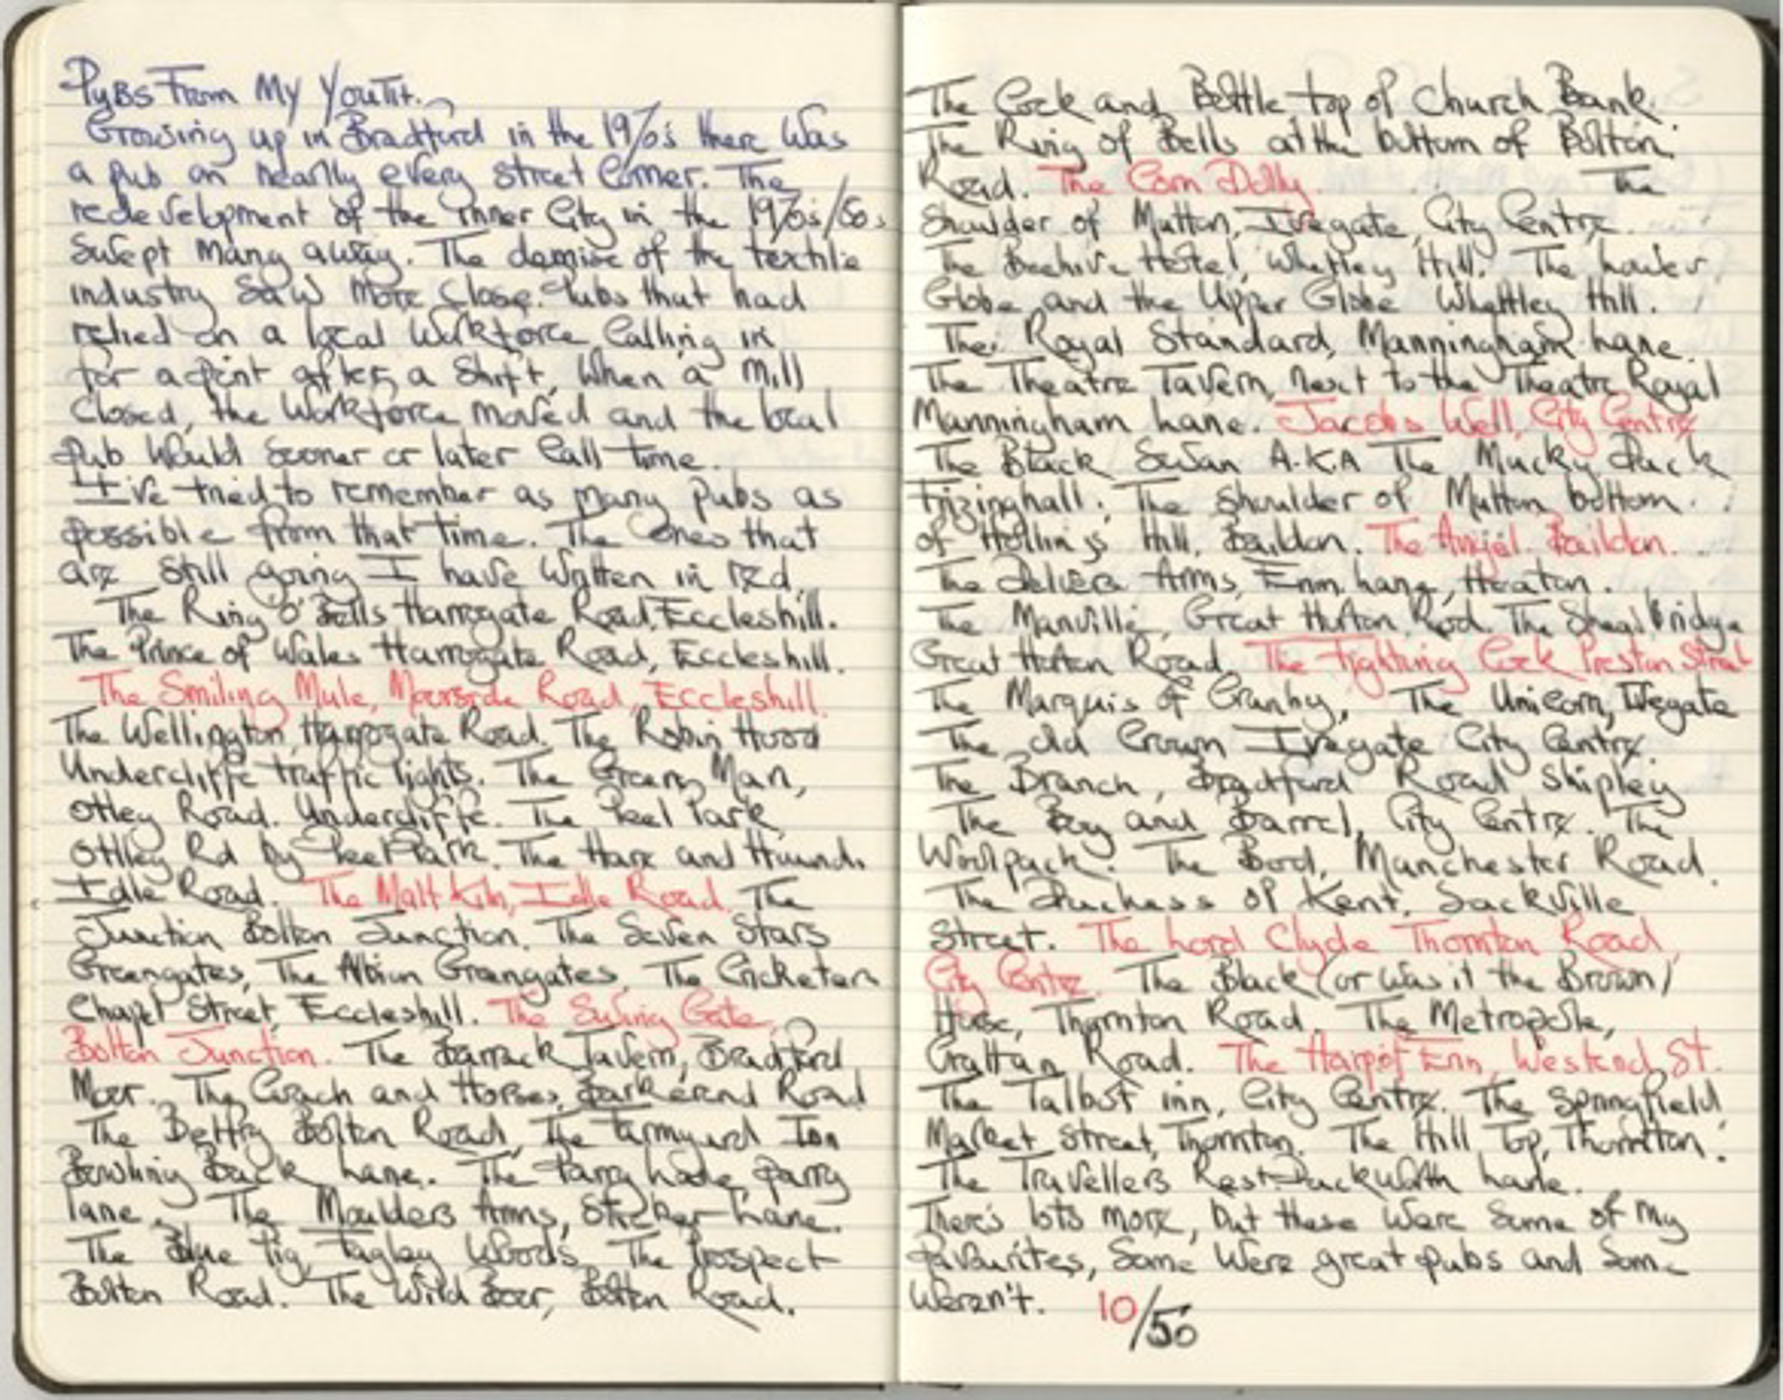 Pubs From My Youth.
Growing up in Bradford in the 1970's there was
a pub on nearlly every street corner. The
redevelopment of the inner City in the 1970's/80s
swept many away. The demise of the textile
industry saw more close. Pubs that had
relied on a local workforce calling in
for a pint after a shift, when a mill
closed, the workforce moved and the local
pub would sooner or later call time.
I've tried to remember as many pubs as
possible from that time. The ones that
are still going I have written in red.
The Ring O'Bells Harrogate Road, Eccleshill.
The Prince of Wales Harrogate Road, Eccleshill.
The Smiling Mule, Moorside Road, Eccleshill.
The Wellington, Harrogate Road. The Robin Hood
Undercliffe traffic lights. The Green Man,
Otley Road. Undercliffe. The Peel Park,
Otlley Rd by Peel Park. The Hare and Hounds
Idle Road. The Malt Kiln, Idle Road. The
Junction Bolton Junction. The Seven Stars
Greengates, The Albion Greengates. The Cricketers
Chapel Street, Eccleshill. The Swing Gate,
Bolton Junction. The Barrack Tavern, Bradford
Moor. The Coach and Horses, Barkerend Road
The Belfry Bolton Road, The Farmyard Inn
Bowling Back Lane. The Parry Lane, Parry
lane. The Moulders Arms, Sticker Lane.
The Blue Pig, Fagley Woods. The Prospect
Bolton Road. The Wild Boar, Bolton Road.
The Cock and Bottle, top of Church Bank.
The Ring of Bells at the bottom of Bolton
Road. The Corn Dolly. The
Shoulder of Mutton, Ivegate, City Centre.
The Beehive Hotel, Whetley Hill. The Lower
Globe and the Upper Globe Whettley Hill.
The Royal Standard, Manningham Lane.
The Theatre Tavern, next to the Theatre Royal
Manningham Lane. Jacobs Well, City Centre
The Black Swan A.K.A The Mucky Duck
Frizinghall. The Shoulder of Mutton bottom
of Hollings Hill, Baildon. The Angel, Baildon.
The Arms, Emm Lane, Heaton.
The Manville, Great Horton Rod. The Shearbridge
Great Horton Road. The Fighting Cock Preston Street
The Marquis of Granby, The Unicorn, Ivegate
The Old Crown Ivegate City Centre
The Branch, Bradford Road Shipley
The Boy and Barrel, City Centre. The
Woolpack. The Bod, Manchester Road.
The Duchess of Kent, Sackville
Street. The Lord Clyde Thornton Road,
City Centre. The Black (or was it the Brown)
Horse, Thornton Road. The Metropole,
Grattan Road. The Harp of Erin, Westend St.
The Talbot inn, City Centre. The Springfield
Market Street, Thornton. The Hill Top, Thornton.
The Travellers Rest Duckworth Lane.
There's lots more, but these were some of my
favourites, some were great pubs and some
weren't. 10/50